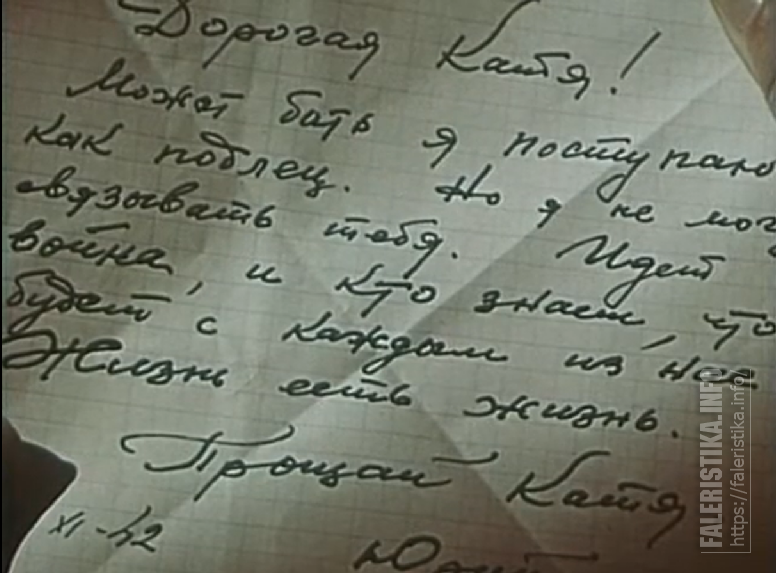 Дорогая Катя!
Может быть я поступаю
как подлец. Но я не мог
связывать тебя. Идет
война, и кто знает, что
будет с каждым из нас
Жизнь есть жизнь.
Прощай Катя
XI-42
Юрий
FALERISTIKA.INFO
https://faleristika.info